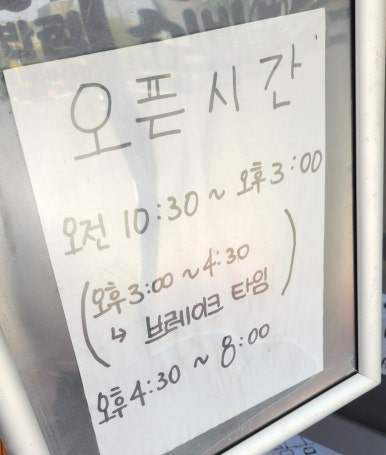 오픈시간
오전 10:30 ~ 오후 3:00
(오후 3:00 ~ 4:30
↳ 브레이크 타임)
오후 4:30 ~ 8:00